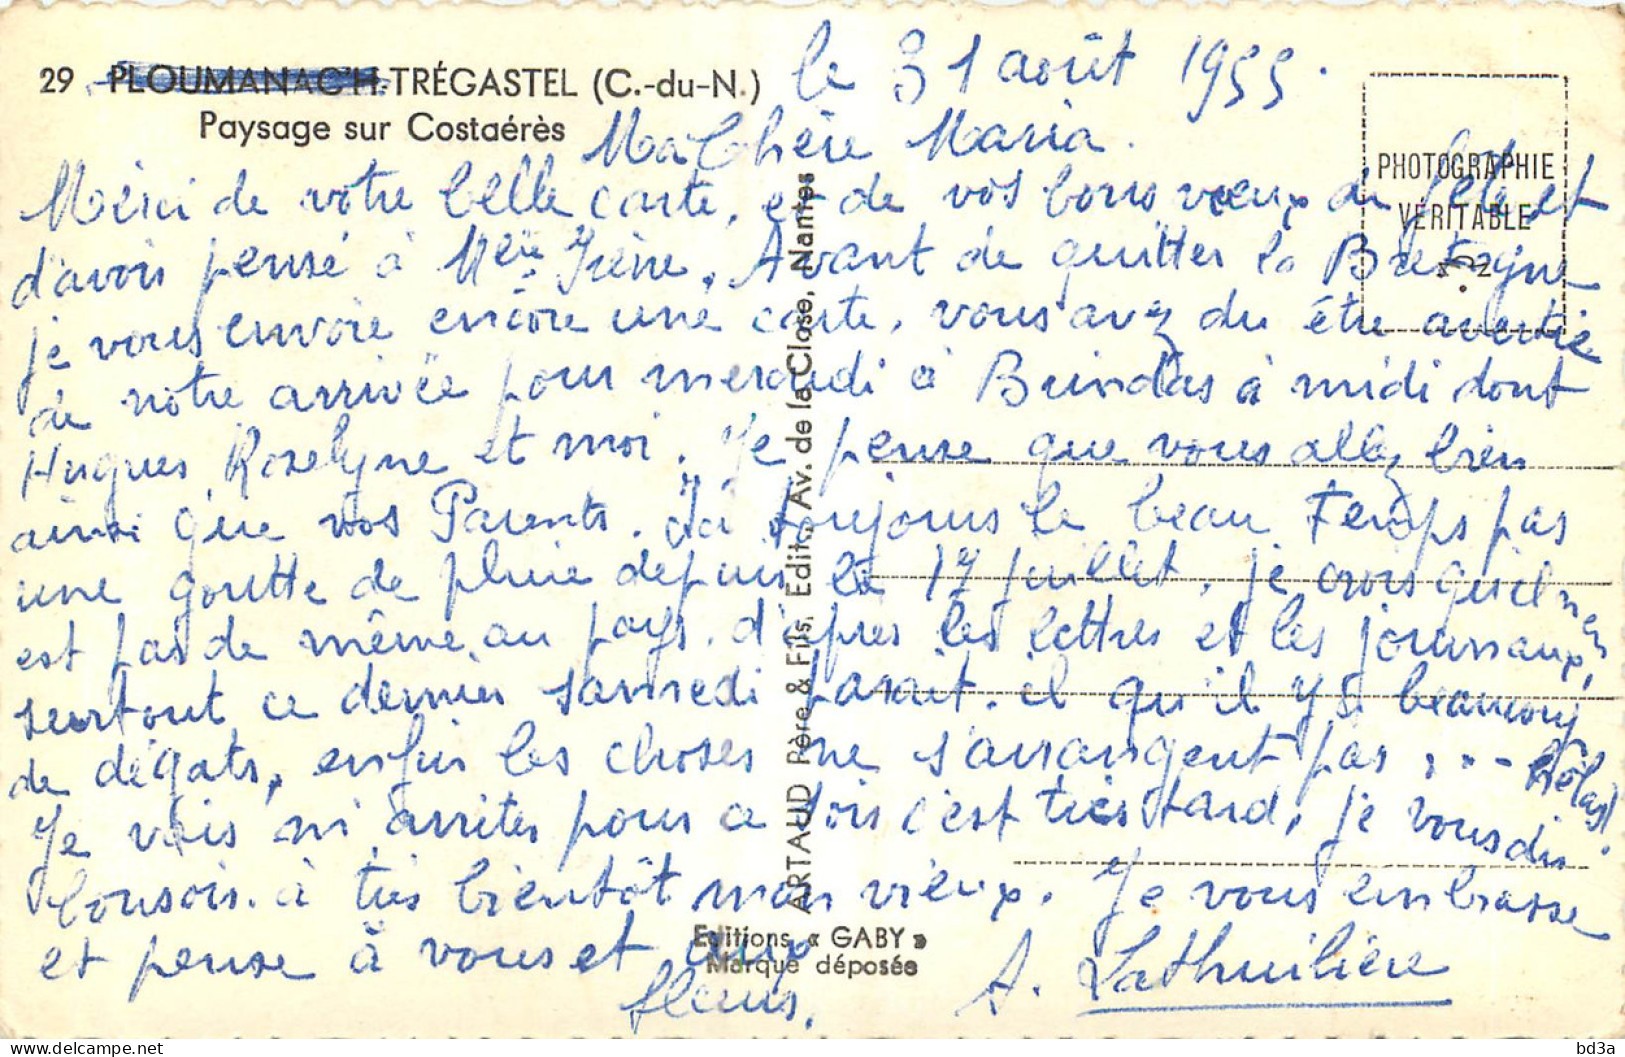 29 PLOUMANAC'H-TRÉGASTEL (C.-du-N.)
Paysage sur Costaérès
le 31 août 1955.
Ma Chère Maria.
Merci de votre belle carte, et de vos bons vœux de fête et
d'avoir pensé à Melle Irène. Avant de quitter la Bretagne
je vous envoie encore une carte, vous avez du être avertie
de notre arrivée pour mercredi à Brindas à midi dont
Hugues, Roselyne et moi. Je pense que vous allez bien
ainsi que vos Parents. Ici toujours le beau Temps pas
une goutte de pluie depuis le 17 juillet, je crois qu'il n'en
est pas de même au pays. d'après les lettres et les journaux,
surtout ce dernier samedi parait-il qu'il y a beaucoup
de dégats, enfin les choses ne s'arrangent pas, .. - hélas!
Je vais m'arrêter pour ce soir c'est très tard, je vous dis
bonsoir. à très bientôt mon vieux. Je vous embrasse
et pense à vous et aux
fleurs.
A. Lathuilière
PHOTOGRAPHIE
VÉRITABLE
ARTAUD Père & Fils, Edit., Av. de la Close, Nantes
Editions « GABY »
Marque déposée
bd3a